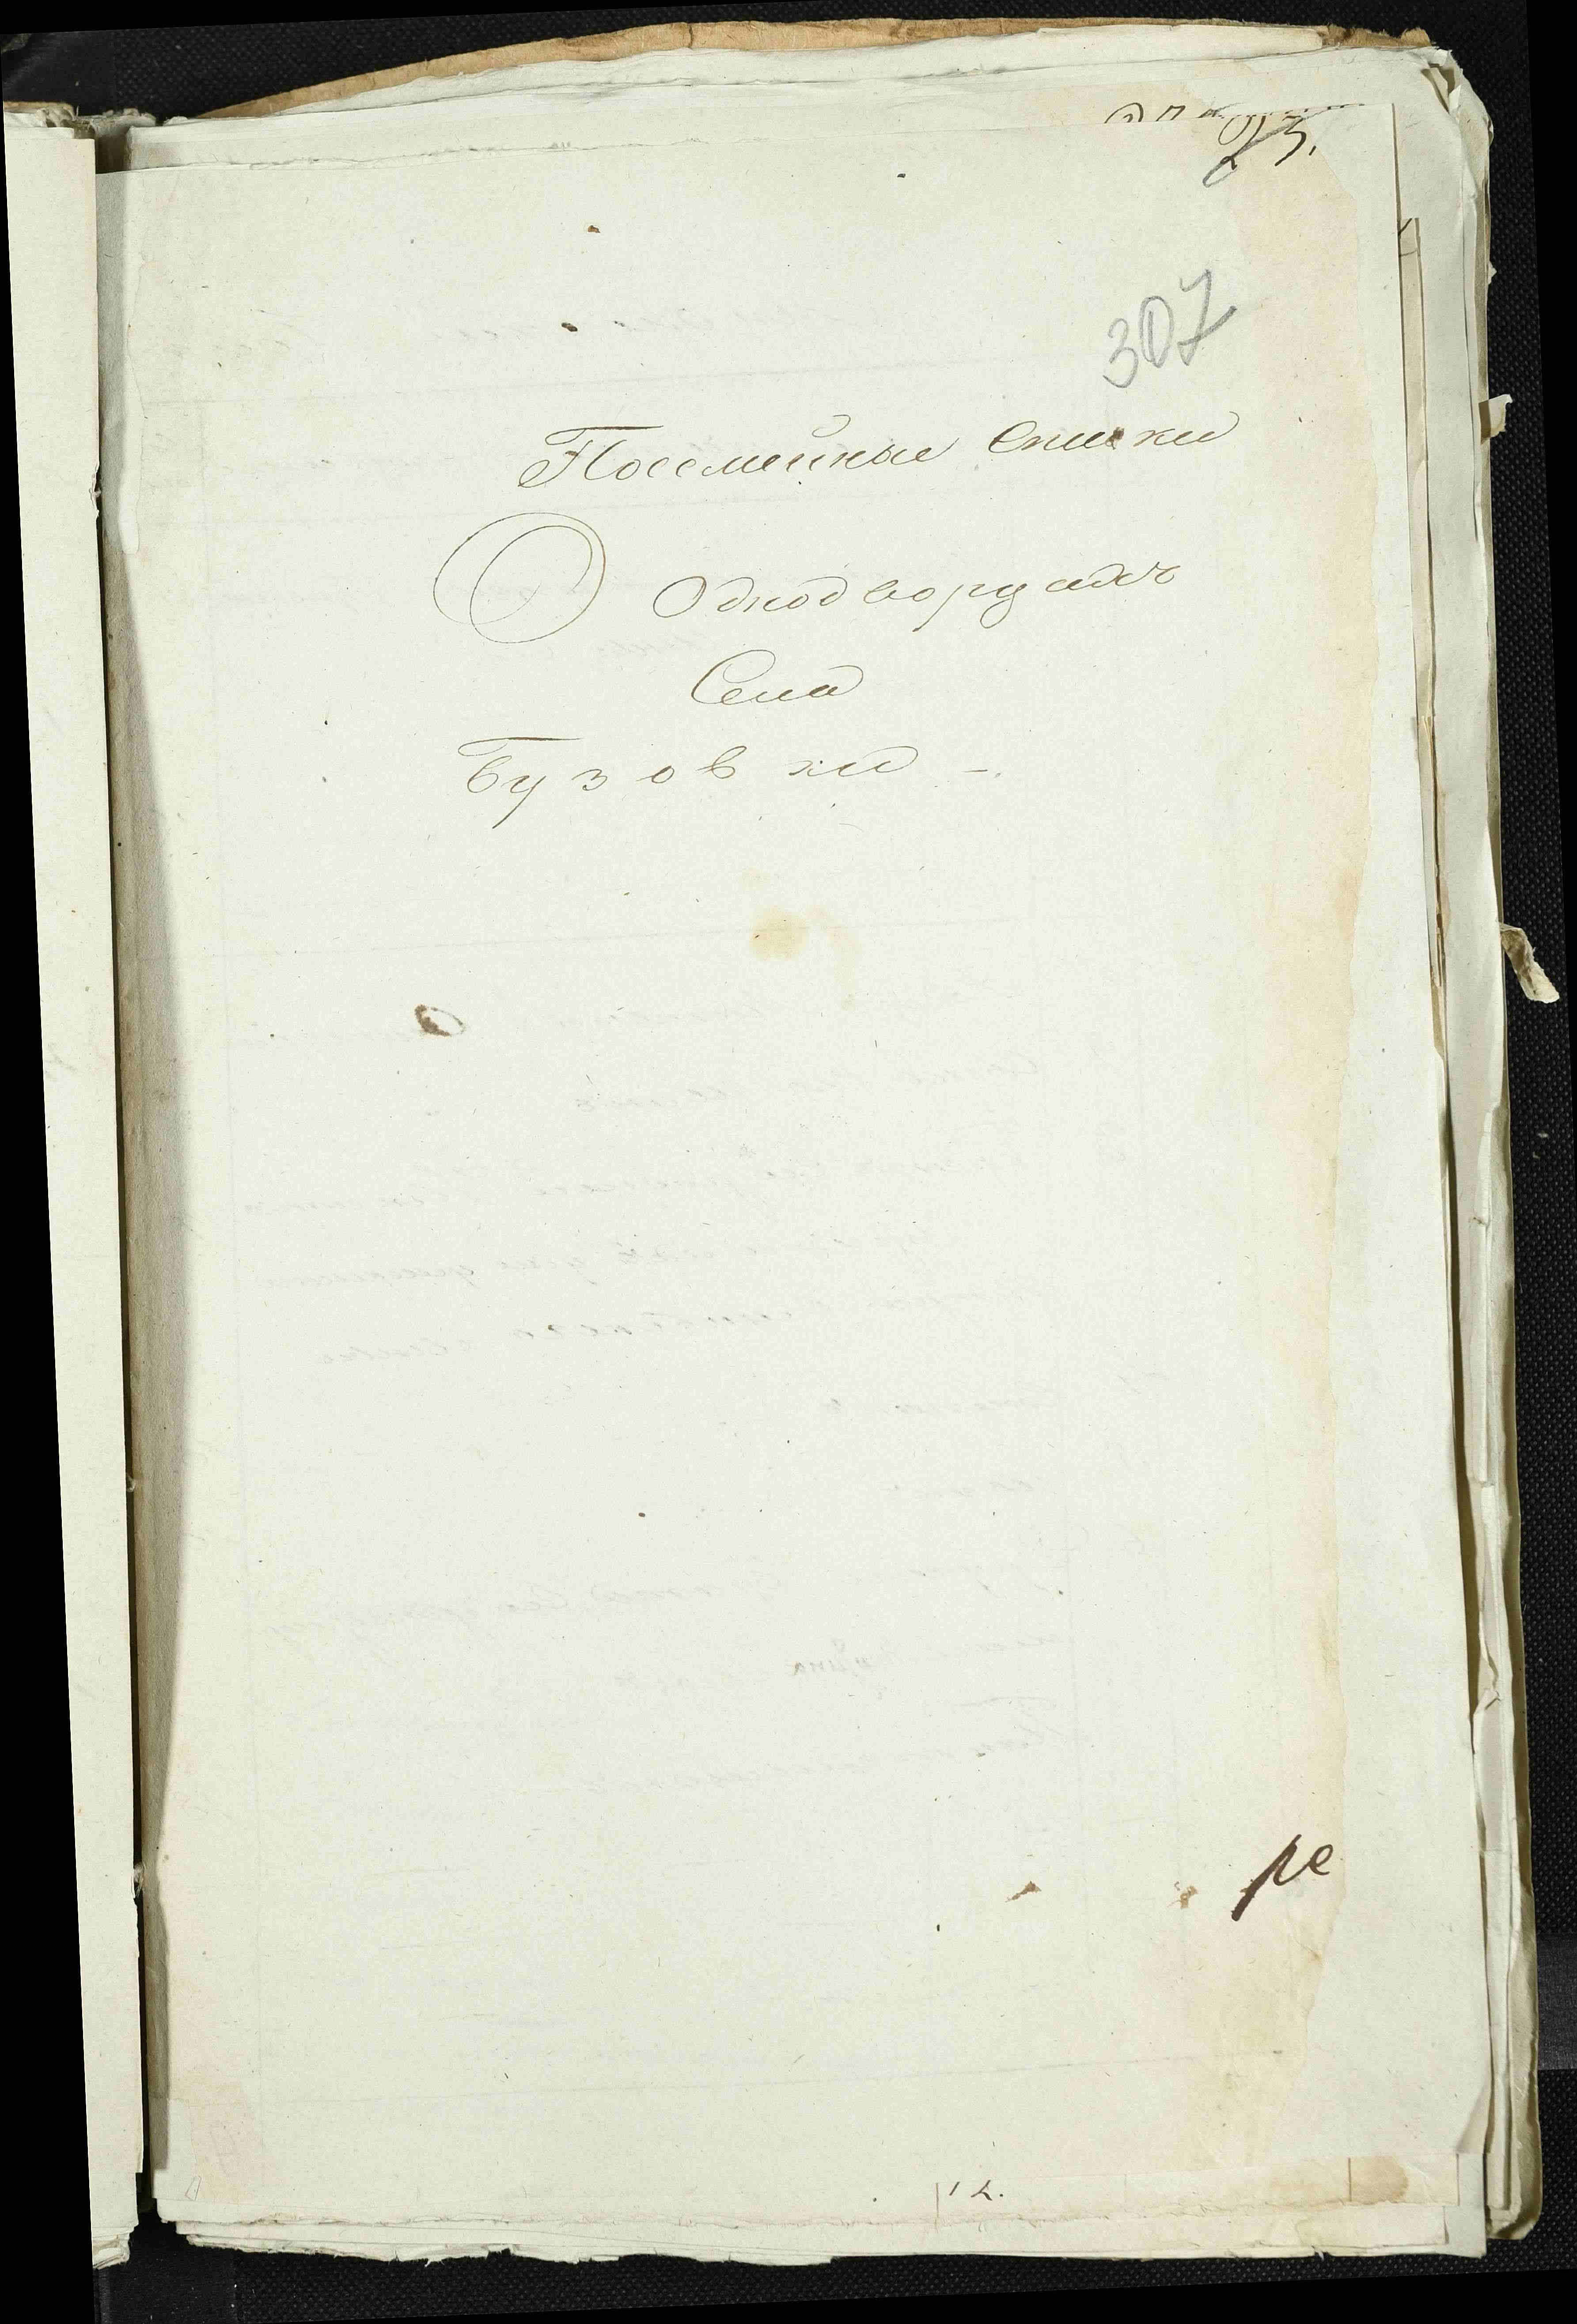 25.
307
Посемейные Списки
О Однодворцахъ
Села
Бузовки -
ре
12.